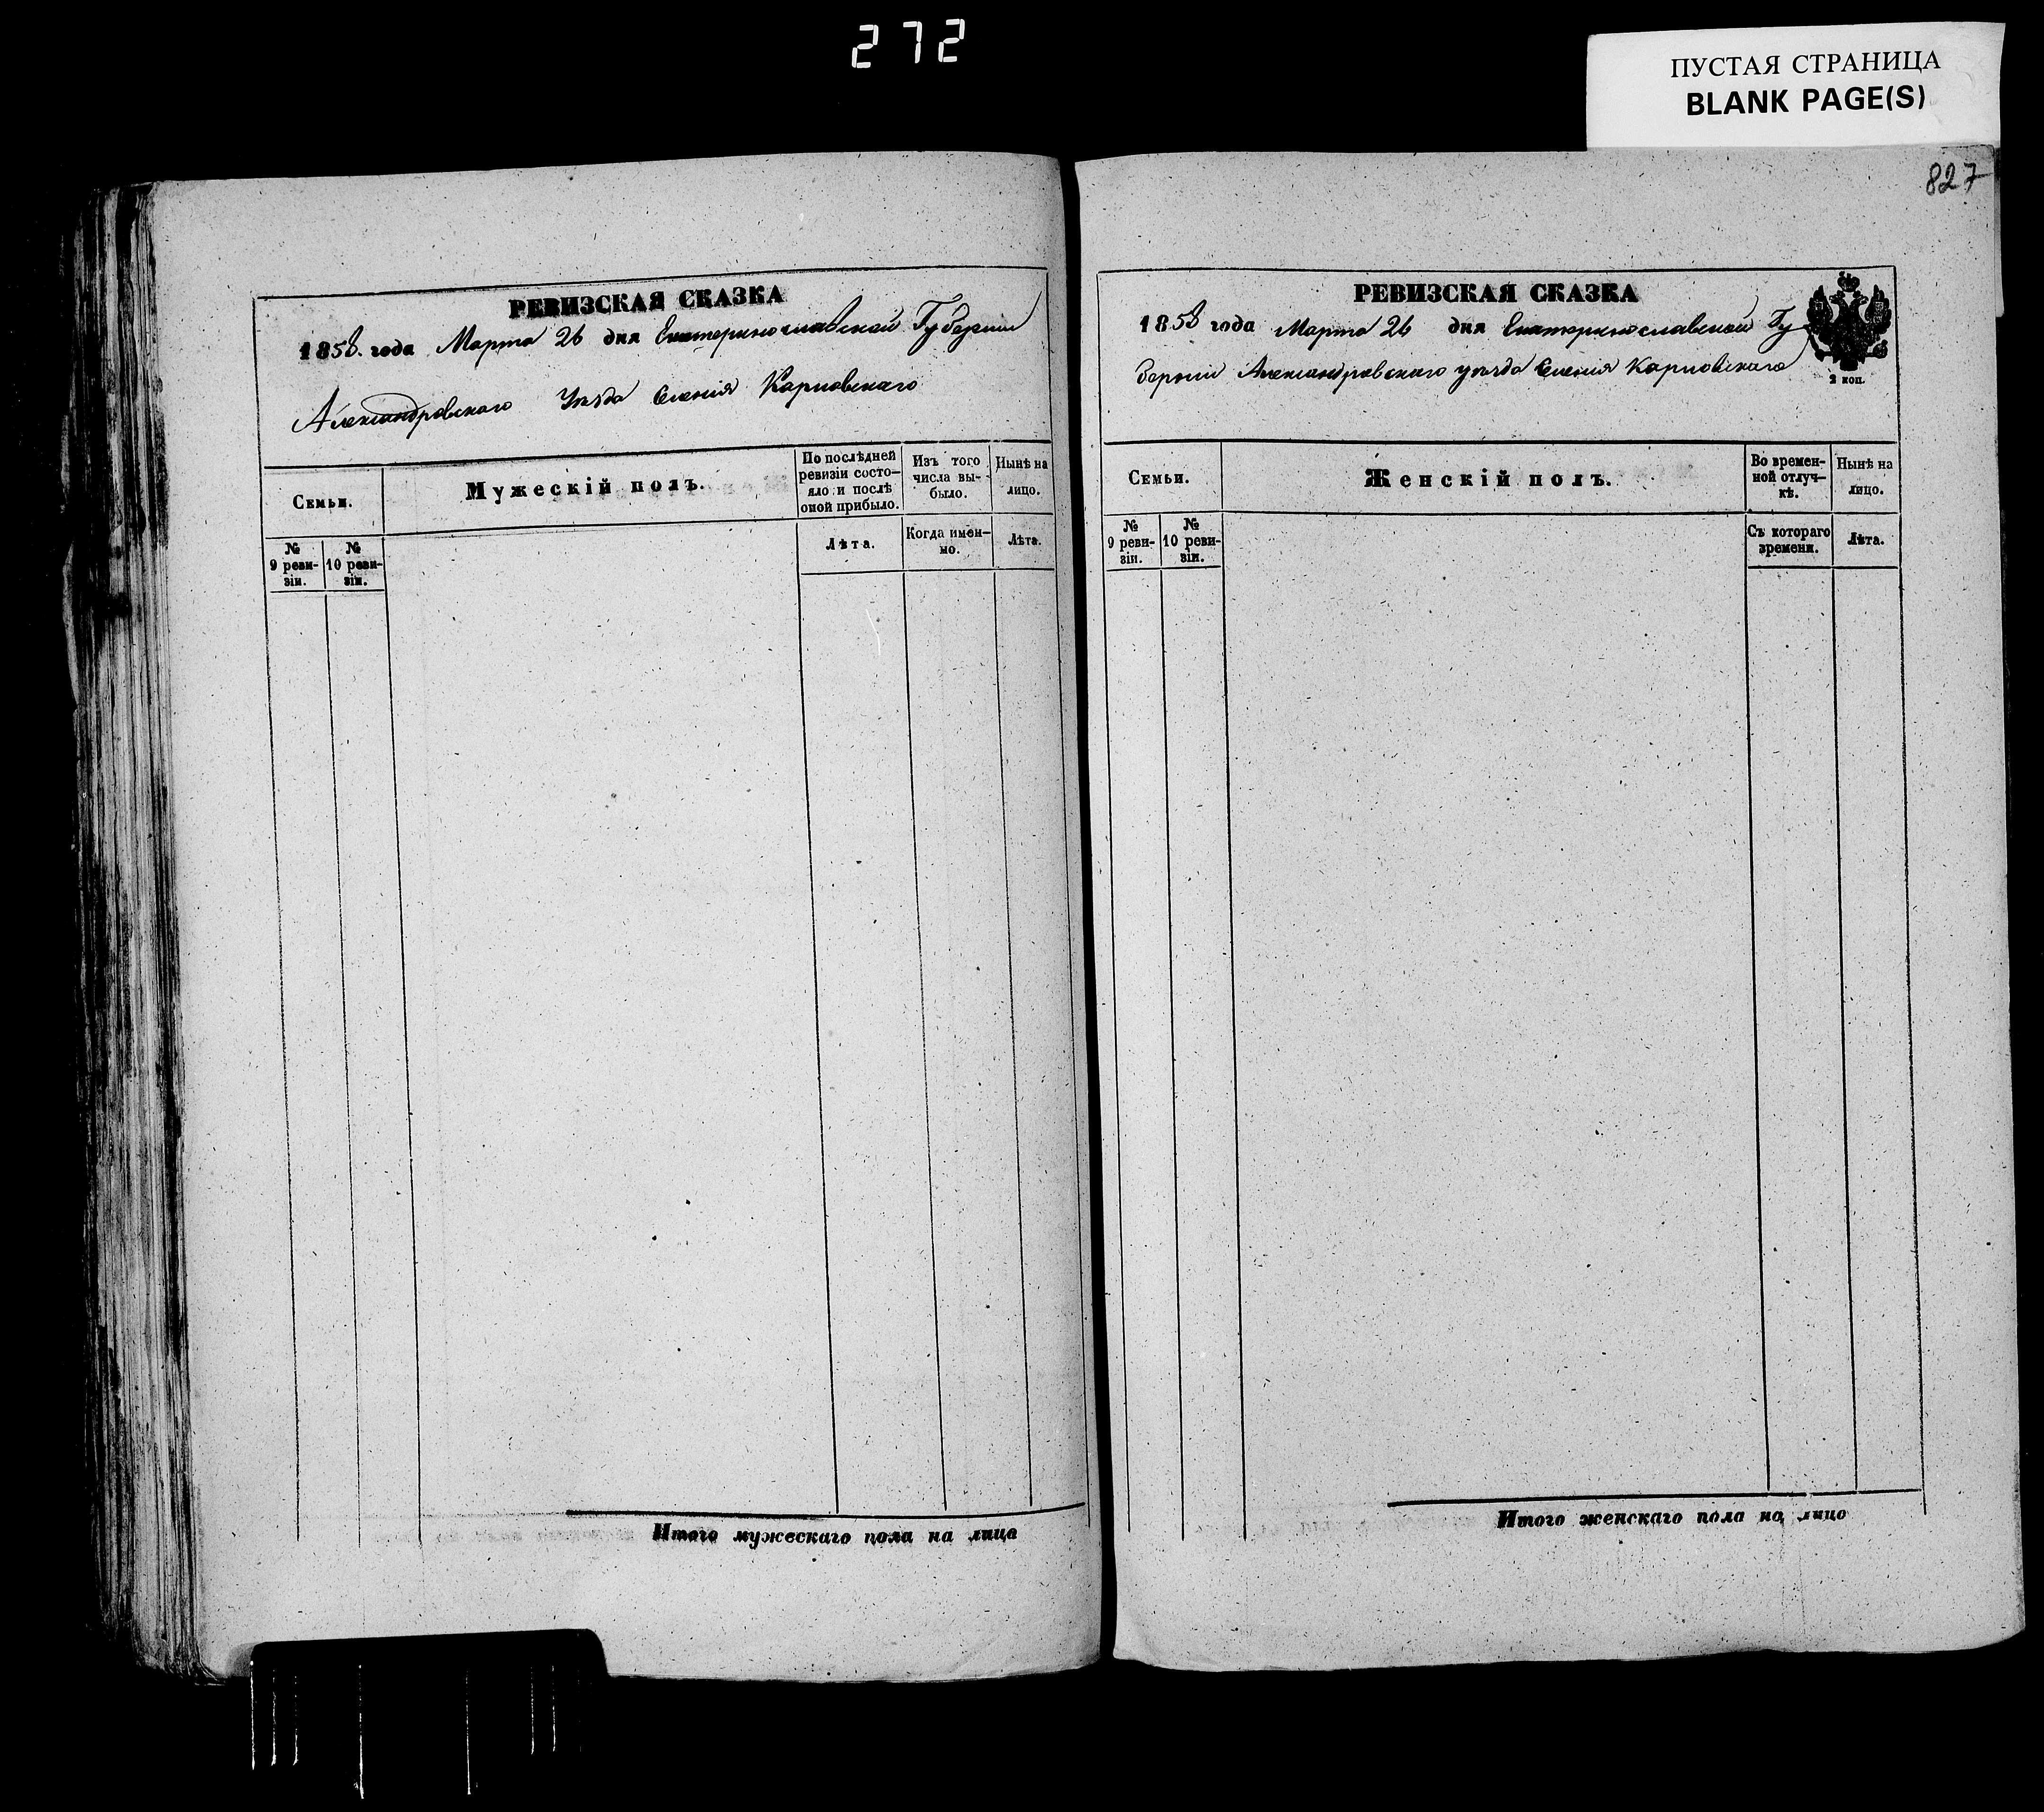 272
ПУСТАЯ СТРАНИЦА
BLANK PAGE(S)
827
РЕВИЗСКАЯ СКАЗКА
1858. года Марта 26 дня Екатеринославской Губернии
Александровскаго Уѣзда Селенія Карповскаго
Семьи.
Мужескій полъ.
По послѣдней
ревизіи состо-
яло и послѣ
оной прибыло.
Изъ того
числа вы-
было.
Нынѣ на
лицо.
№
9 реви-
зіи.
№
10 реви-
зіи.
Лѣта.
Когда имен-
но.
Лѣта.
Итого мужескаго пола на лицо
РЕВИЗСКАЯ СКАЗКА
1858 года Марта 26 дня Екатеринославской Гу
берніи Александровскаго уѣзда Селенія Карповскаго
2 коп.
Семьи.
Женскій полъ.
Во времен-
ной отлуч-
кѣ.
Нынѣ на
лицо.
№
9 реви-
зіи.
№
10 реви-
зіи.
Съ котораго
времени.
Лѣта.
Итого женскаго пола на лицо